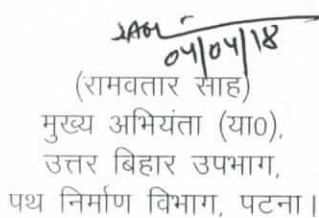 04/04/18
(रामवतार साह)
मुख्य अभियंता (या०),
उत्तर बिहार उपभाग,
पथ निर्माण विभाग, पटना।